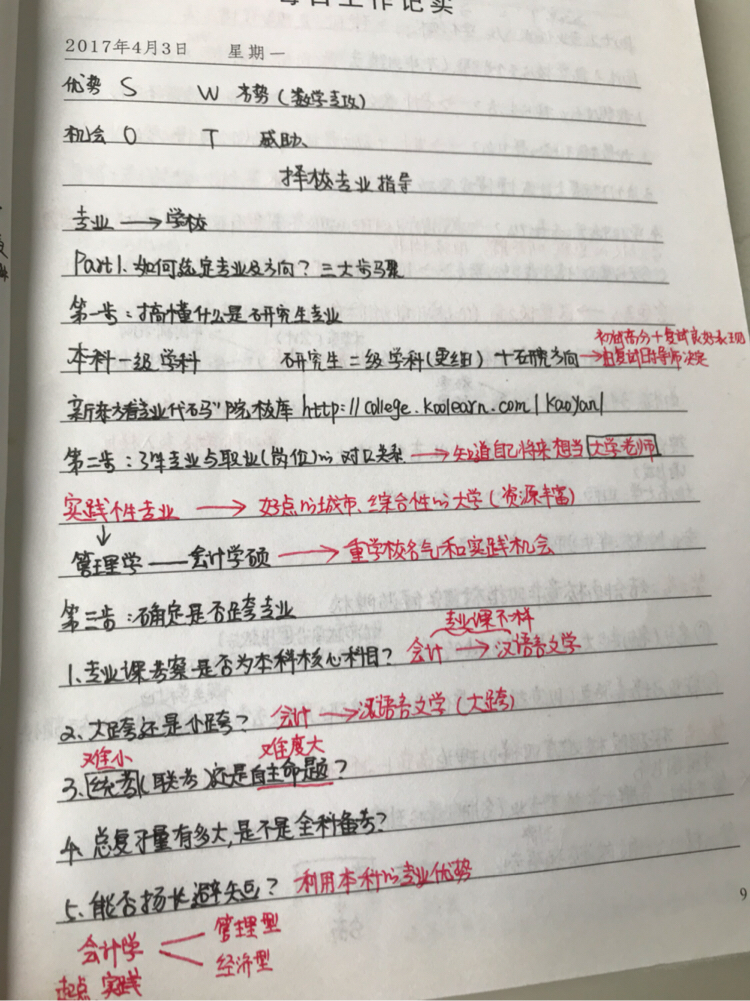 每日工作记实
2017年4月3日 星期一
优势 S W 劣势(数学专攻)
机会 O T 威胁、
择校专业指导
专业 → 学校
Part1.如何选定专业及方向？三大步骤
第一步：搞懂什么是研究生专业
初试高分+复试良好表现
本科一级学科 研究生二级学科(更细)+研究方向→由复试时导师决定
新东方"看专业代码"院校库 http://college.koolearn.com/kaoyan/
第二步：了解专业与职业(岗位)的对口关系→知道自己将来想当大学老师
实践性专业 → 好点的城市、综合性的大学(资源丰富)
↓
管理学——会计学硕 → 重学校名气和实践机会
第三步：确定是否跨专业
专业课不一样
1、专业课考察是否为本科核心科目？会计→汉语言文学
2、大跨还是小跨？会计→汉语言文学(大跨)
难度小 难度大
3、统考(联考)还是自主命题？
4、总复习量有多大,是不是全科备考？
5、能否扬长避短？利用本科的专业优势
会计学 管理型
经济型
起点 实践
9